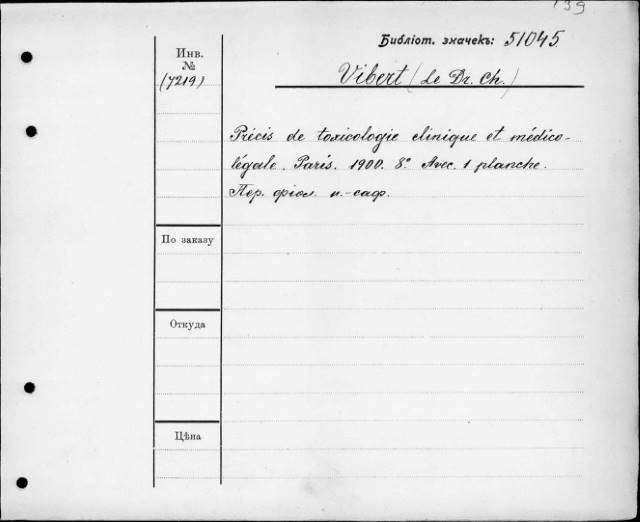 139
Библіот. значекъ: 51045.
Инв.
№
(7219)
Vibert (Le Dr. Ch.)
Précis de toxicologie clinique et médico-
légale. Paris. 1900. 8° Avec 1 planche.
Пер. фіол. п.-саф.
По заказу
Откуда
Цѣна